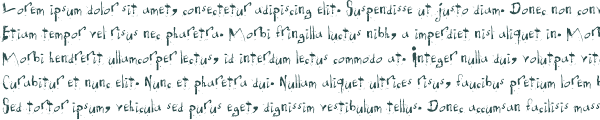 Lorem ipsum dolor sit amet, consectetur adipiscing elit. Suspendisse ut justo diam. Donec non con
Etiam tempor vel risus nec pharetra. Morbi fringilla luctus nibh, a imperdiet nisl aliquet in. Mor
Morbi hendrerit ullamcorper lectus, id interdum lectus commodo at. Integer nulla dui, volutpat vit
Curabitur et nunc elit. Nunc et pharetra dui. Nullam aliquet ultrices risus, faucibus pretium lorem
Sed tortor ipsum, vehicula sed purus eget, dignissim vestibulum tellus. Donec accumsan facilisis mass